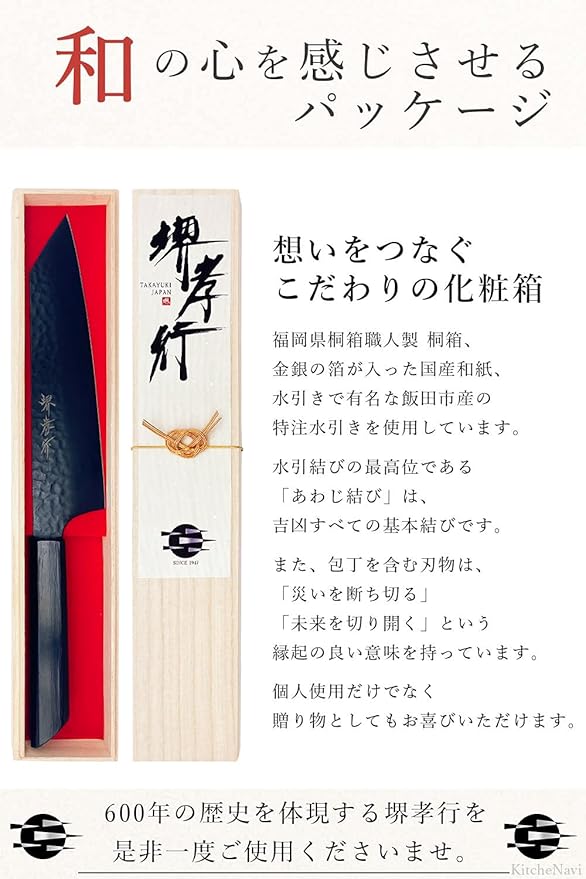 和の心を感じさせる
パッケージ
堺孝行
TAKAYUKI
JAPAN
SINCE 1947
堺孝行
想いをつなぐ
こだわりの化粧箱
福岡県桐箱職人製 桐箱、
金銀の箔が入った国産和紙、
水引きで有名な飯田市産の
特注水引きを使用しています。
水引結びの最高位である
「あわじ結び」は、
吉凶すべての基本結びです。
また、包丁を含む刃物は、
「災いを断ち切る」
「未来を切り開く」という
縁起の良い意味を持っています。
個人使用だけでなく
贈り物としてもお喜びいただけます。
600年の歴史を体現する堺孝行を
是非一度ご使用くださいませ。
KitcheNavi